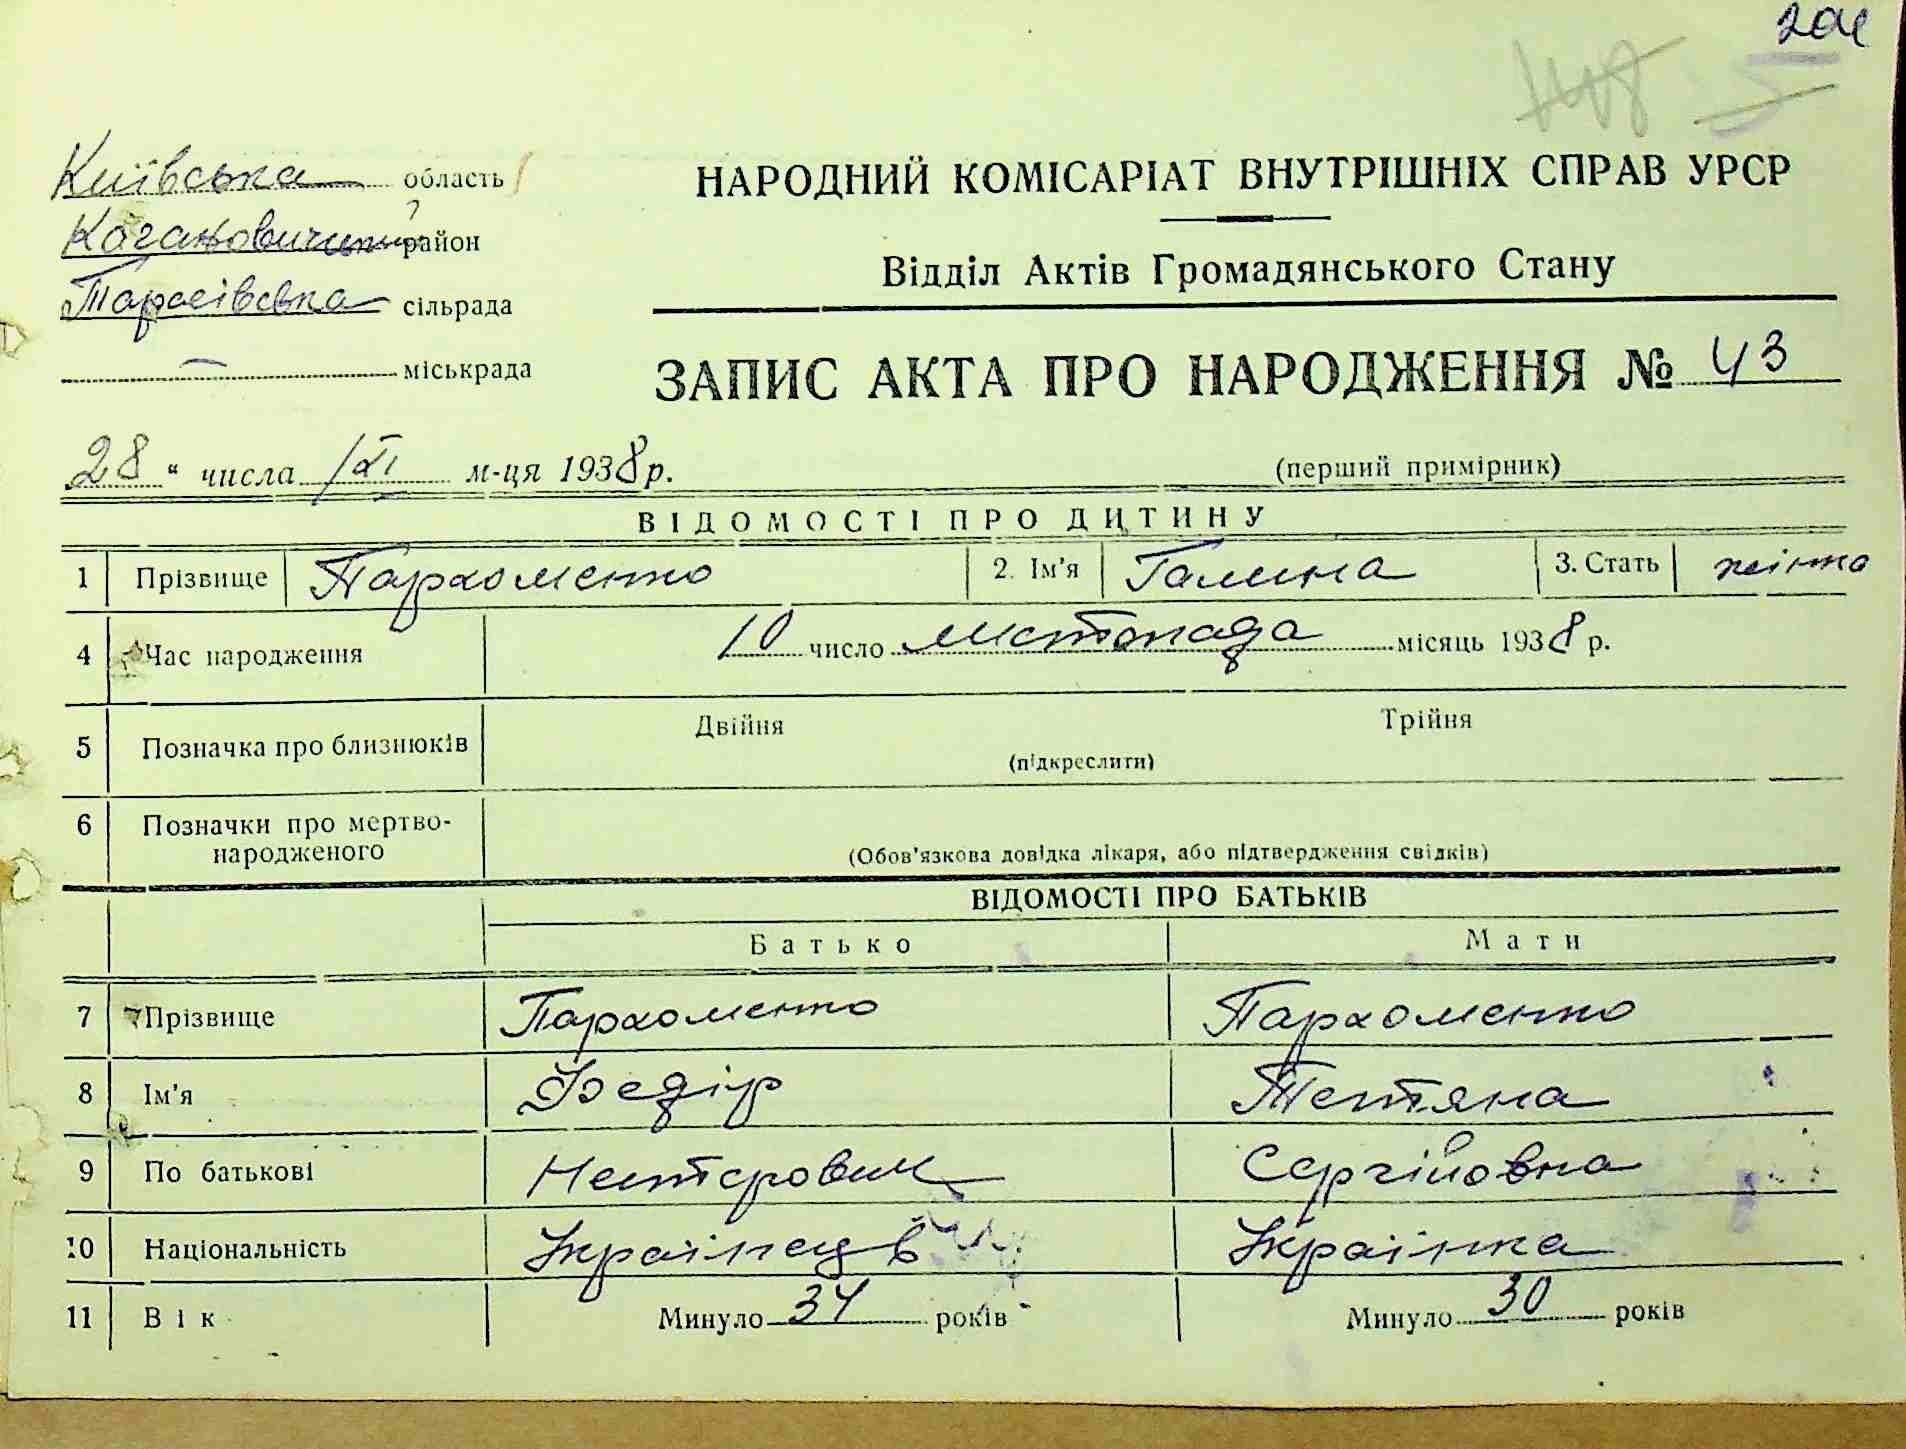 204
Київська область
Кагановичський район
Тарасівська сільрада
— міськрада
НАРОДНИЙ КОМІСАРІАТ ВНУТРІШНІХ СПРАВ УРСР
Відділ Актів Громадянського Стану
ЗАПИС АКТА ПРО НАРОДЖЕННЯ № 43
28 " числа XI м-ця 1938 р.
(перший примірник)
ВІДОМОСТІ ПРО ДИТИНУ
1 Прізвище Пархоменко 2. Ім'я Галина 3. Стать жінка
4 Час народження 10 число листопада місяць 1938 р.
5 Позначка про близнюків Двійня Трійня
(підкреслити)
6 Позначки про мертво-
народженого
(Обов'язкова довідка лікаря, або підтвердження свідків)
ВІДОМОСТІ ПРО БАТЬКІВ
Батько Мати
7 Прізвище Пархоменко Пархоменко
8 Ім'я Федір Тетяна
9 По батькові Нестерович Сергійовна
10 Національність Українець Українка
11 Вік Минуло 34 років Минуло 30 років